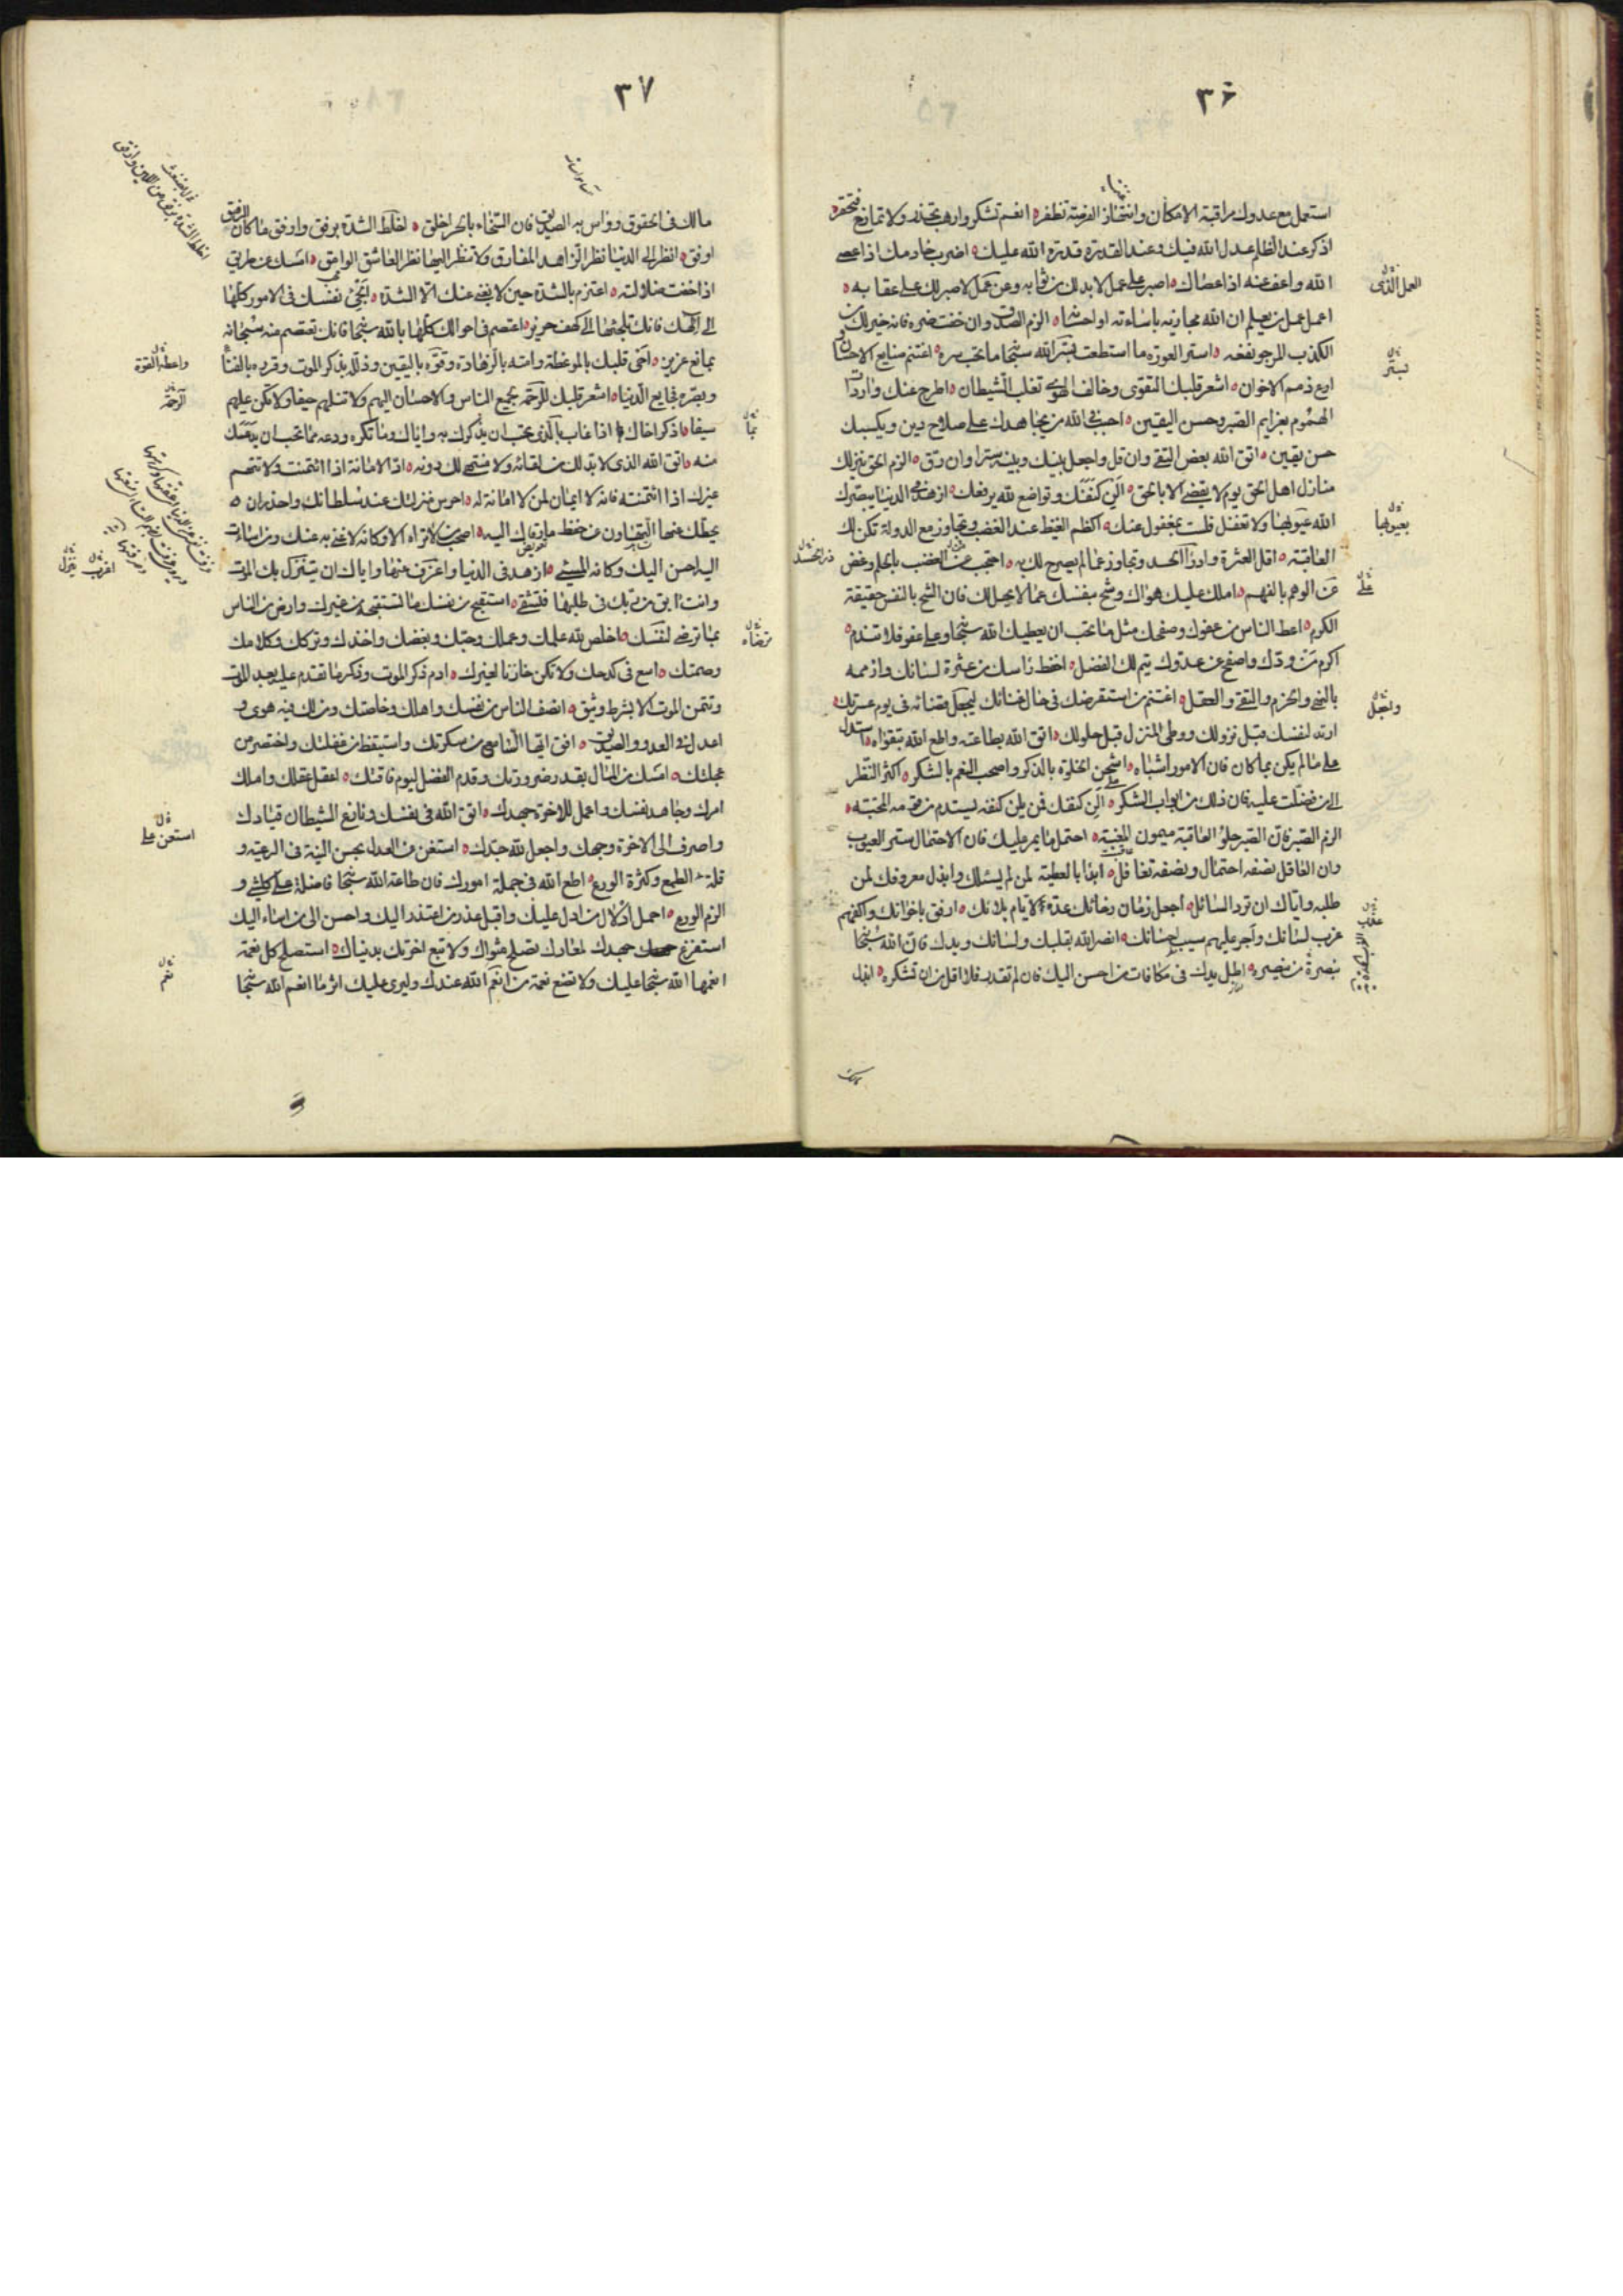 ٣٦
استعمل مع عدوك مراقبة الامكان وانتهاز الفرصة تظفر ه انعم تشكر وارهب تحذر ولا تمازح فتحقر ه
اذكر عند الظلم عدل الله فيك وعند القدرة قدرة الله عليك ه اضرب خادمك اذا عصى
الله واعف عنه اذا عصاك ه اصبر على عمل لا بد لك من ثوابه وعن عمل لا صبر لك على عقابه ه
اعمل عمل من يعلم ان الله مجازيه باساءته او احسانه ه الزم الصدق وان خفت ضره فانه خير لك من
الكذب المرجو نفعه ه استر العورة ما استطعت يستر الله سبحانه ما تحب ستره ه اغتنم صنايع الاحسان و
ارع ذمم الاخوان ه اشعر قلبك التقوى وخالف الهوى تغلب الشيطان ه اطرح عنك واردات
الهموم بعزايم الصبر وحسن اليقين ه احبب فى الله من يجاهدك على صلاح دين ويكسبك
حسن يقين ه اتق الله بعض التقى وان قل واجعل بينك وبينه سترا وان رق ه الزم الحق ينزلك
منازل اهل الحق يوم لا يقضى الا بالحق ه الن كنفك وتواضع لله يرفعك ه ازهد فى الدنيا يبصرك
الله عيوبها ولا تغفل فلست بمغفول عنك ه اكظم الغيظ عند الغضب وتجاوز مع الدولة تكن لك
العاقبة ه اقل العثرة وادرأ الحد وتجاوز عما لم يصرح لك به ه احتجب عن الغضب بالحلم وغض
عن الوهم بالفهم ه املك عليك هواك وشح بنفسك عما لا يحل لك فان الشح بالنفس حقيقة
الكرم ه اعط الناس من عفوك وصفحك مثل ما تحب ان يعطيك الله سبحانه وعلى عفو فلا تندم ه
اكرم من ودك واصفح عن عدوك يتم لك الفضل ه احفظ راسك من عثرة لسانك وازممه
بالنهى والحزم والتقى والعقل ه اغتنم من استقرضك فى حال غنائك ليجعل قضائه فى يوم عسرتك ه
ارتد لنفسك قبل نزولك ووطئ المنزل قبل حلولك ه اتق الله بطاعته واطع الله بتقواه ه استدل
على ما لم يكن بما كان فان الامور اشباه ه اشحن الخلوة بالذكر واصحب النعم بالشكر ه اكثر النظر
الى من فضلت عليه فان ذلك من ابواب الشكر ه الن كنفك فمن يلن كنفه يستدم من قومه المحبة ه
الزم الصبر فان الصبر حلو العاقبة ميمون المغبة ه احتمل ما يمر عليك فان الاحتمال ستر العيوب
وان العاقل نصفه احتمال ونصفه تغافل ه ابدأ بالعطية لمن لم يسئلك وابذل معروفك لمن
طلبه واياك ان ترد السائل ه اجعل زمان رخائك عدة لايام بلائك ه ارفق باخوانك واكفهم
غرب لسانك واجر عليهم سيب احسانك ه انصر الله بقلبك ولسانك ويدك فان الله سبحانه
بنصرة من ينصره ه اطل يدك فى مكافات من احسن اليك فان لم تقدر فلا اقل من ان تشكره ه ابذل
العمل الذى
يستر
بعيوبها
على
وابخل
٣٧
مالك فى الحقوق وواس به الصديق فان السخاء بالحر اخلق ه اخلط الشدة برفق وارفق ما كان الرفق
اوفق ه انظر الى الدنيا نظر الزاهد المفارق ولا تنظر اليها نظر العاشق الوامق ه امسك عن طريق
اذا خفت ضلالته ه اعتزم بالشدة حين لا يغنى عنك الا الشدة ه الجئ نفسك فى الامور كلها
الى الهك فانك تلجئها الى كهف حريز ه اعتصم فى احوالك كلها بالله سبحانه فانك تعتصم منه سبحانه
بمانع عزيز ه احى قلبك بالموعظة وامته بالزهادة وقوه باليقين وذلله بذكر الموت وقرره بالفناء
وبصره فجايع الدنيا ه اشعر قلبك الرحمة لجميع الناس والاحسان اليهم ولا تنلهم حيفا ولا تكن عليهم
سيفا ه اذكر اخاك اذا غاب بالذى تحب ان يذكرك به واياك وما تكره ودعه مما تحب ان يدعك
منه ه اتق الله الذى لا بد لك من لقائه ولا منتهى لك دونه ه اد الامانة اذا ائتمنت ولا تتهم
غيرك اذا ائتمنته فانه لا ايمان لمن لا امانة له ه احرس منزلتك عند سلطانك واحذر ان ه
يحطك عنها التهاون عن حفظ ما رقاك اليه ه اصحب من لا تراه الا وكانه لا غنى به عنك وان اسأت
اليه احسن اليك وكانه المسئ ه ازهد فى الدنيا واعزف عنها واياك ان ينزل بك الموت
وانت ابق من ربك فى طلبها فتشقى ه استقبح من نفسك ما تستقبحه من غيرك وارض من الناس
بما ترضى لنفسك ه اخلص لله علمك وعملك وحبك وبغضك واخذك وتركك وكلامك
وصمتك ه اسع فى كدحك ولا تكن خازنا لغيرك ه ادم ذكر الموت وذكر ما تقدم عليه بعد الموت
ولا تتمن الموت الا بشرط وثيق ه انصف الناس من نفسك واهلك وخاصتك ومن لك فيه هوى و
اعدل فى العدو والصديق ه افق ايها الناسى من سكرتك واستيقظ من غفلتك واختصر من
عجلتك ه امسك من المال بقدر ضرورتك وقدم الفضل ليوم فاقتك ه اعقل عقلك واملك
امرك وجاهد نفسك واعمل للاخرة جهدك ه اتق الله فى نفسك ونازع الشيطان قيادك
واصرف الى الاخرة وجهك واجعل لله جدك ه استعن على العدل بحسن النية فى الرعية و
قلة الطمع وكثرة الورع ه اطع الله فى جملة امورك فان طاعة الله سبحانه فاضلة على كل شئ و
الزم الورع ه احمل ادلال من ادل عليك واقبل عذر من اعتذر اليك واحسن الى من اساء اليك
استفرغ جهدك لمعادك تصلح مثواك ولا تبع اخرتك بدنياك ه استصلح كل نعمة
انعمها الله سبحانه عليك ولا تضع نعمة من نعم الله عندك ولير عليك اثر ما انعم الله سبحانه
واعطه القوة
الرحمة
استعن على
نعم